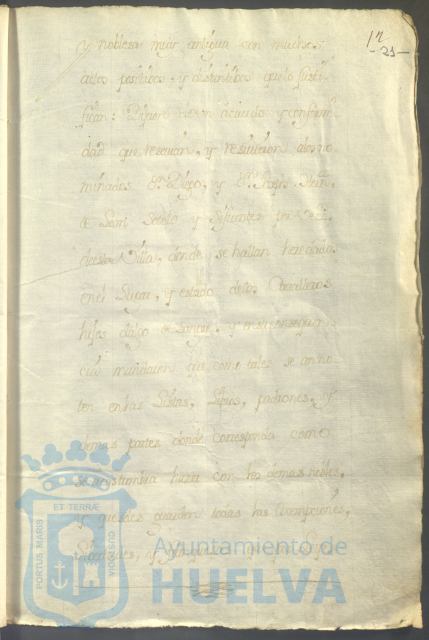 12
-21-
y nobleza muy antigua con muchos
actos positivos, y distintibos que lo justi-
fican: Dijeron de un acuerdo y conformi
dad que recevian, y recivieron a los no
minados Dn. Diego, y
de y Sifuentes por
de esta Villa, donde se hallan heredados
en el Lugar, y estado de los Cavalleros
hijos dalgo de sangre, y en su consequen-
cia mandaron que como tales se anno-
ten en las Listas, Libros, padrones, y
demas partes donde corresponda como
se acostumbra hacer con los demas nobles,
y guarden todas las exempciones,
y
PORTUS MARIS
ET TERRÆ
CUSTODIA
Ayuntamiento de
HUELVA